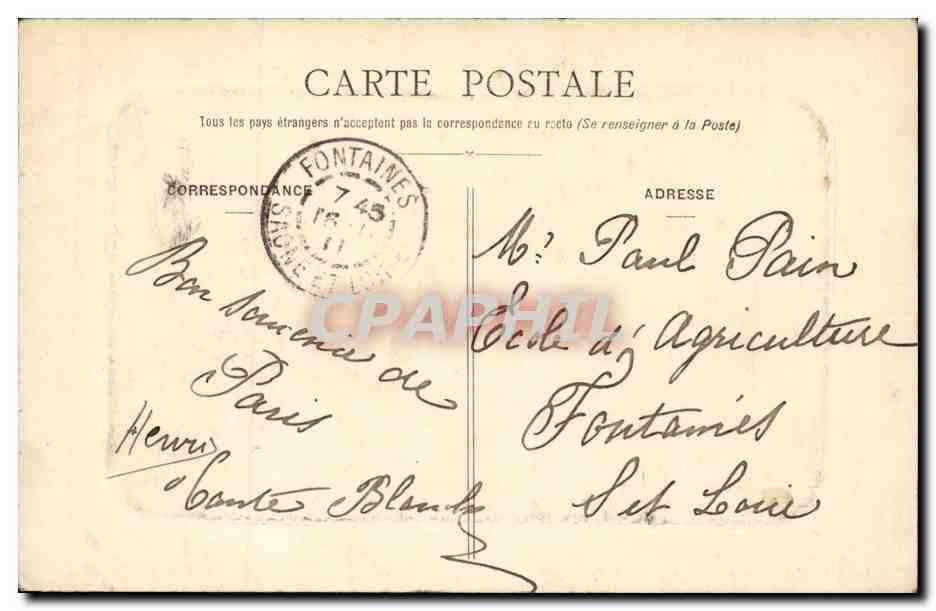 CARTE POSTALE
Tous les pays étrangers n'acceptent pas la correspondance au recto (Se renseigner à la Poste)
CORRESPONDANCE
ADRESSE
FONTAINES
7 45
16
11
SAONE ET LOIRE
Bon souvenir de
Paris
Henri
Tante Blanche
Mr Paul Pain
Ecole d'Agriculture
Fontaines
S et Loire
CPAPHIL